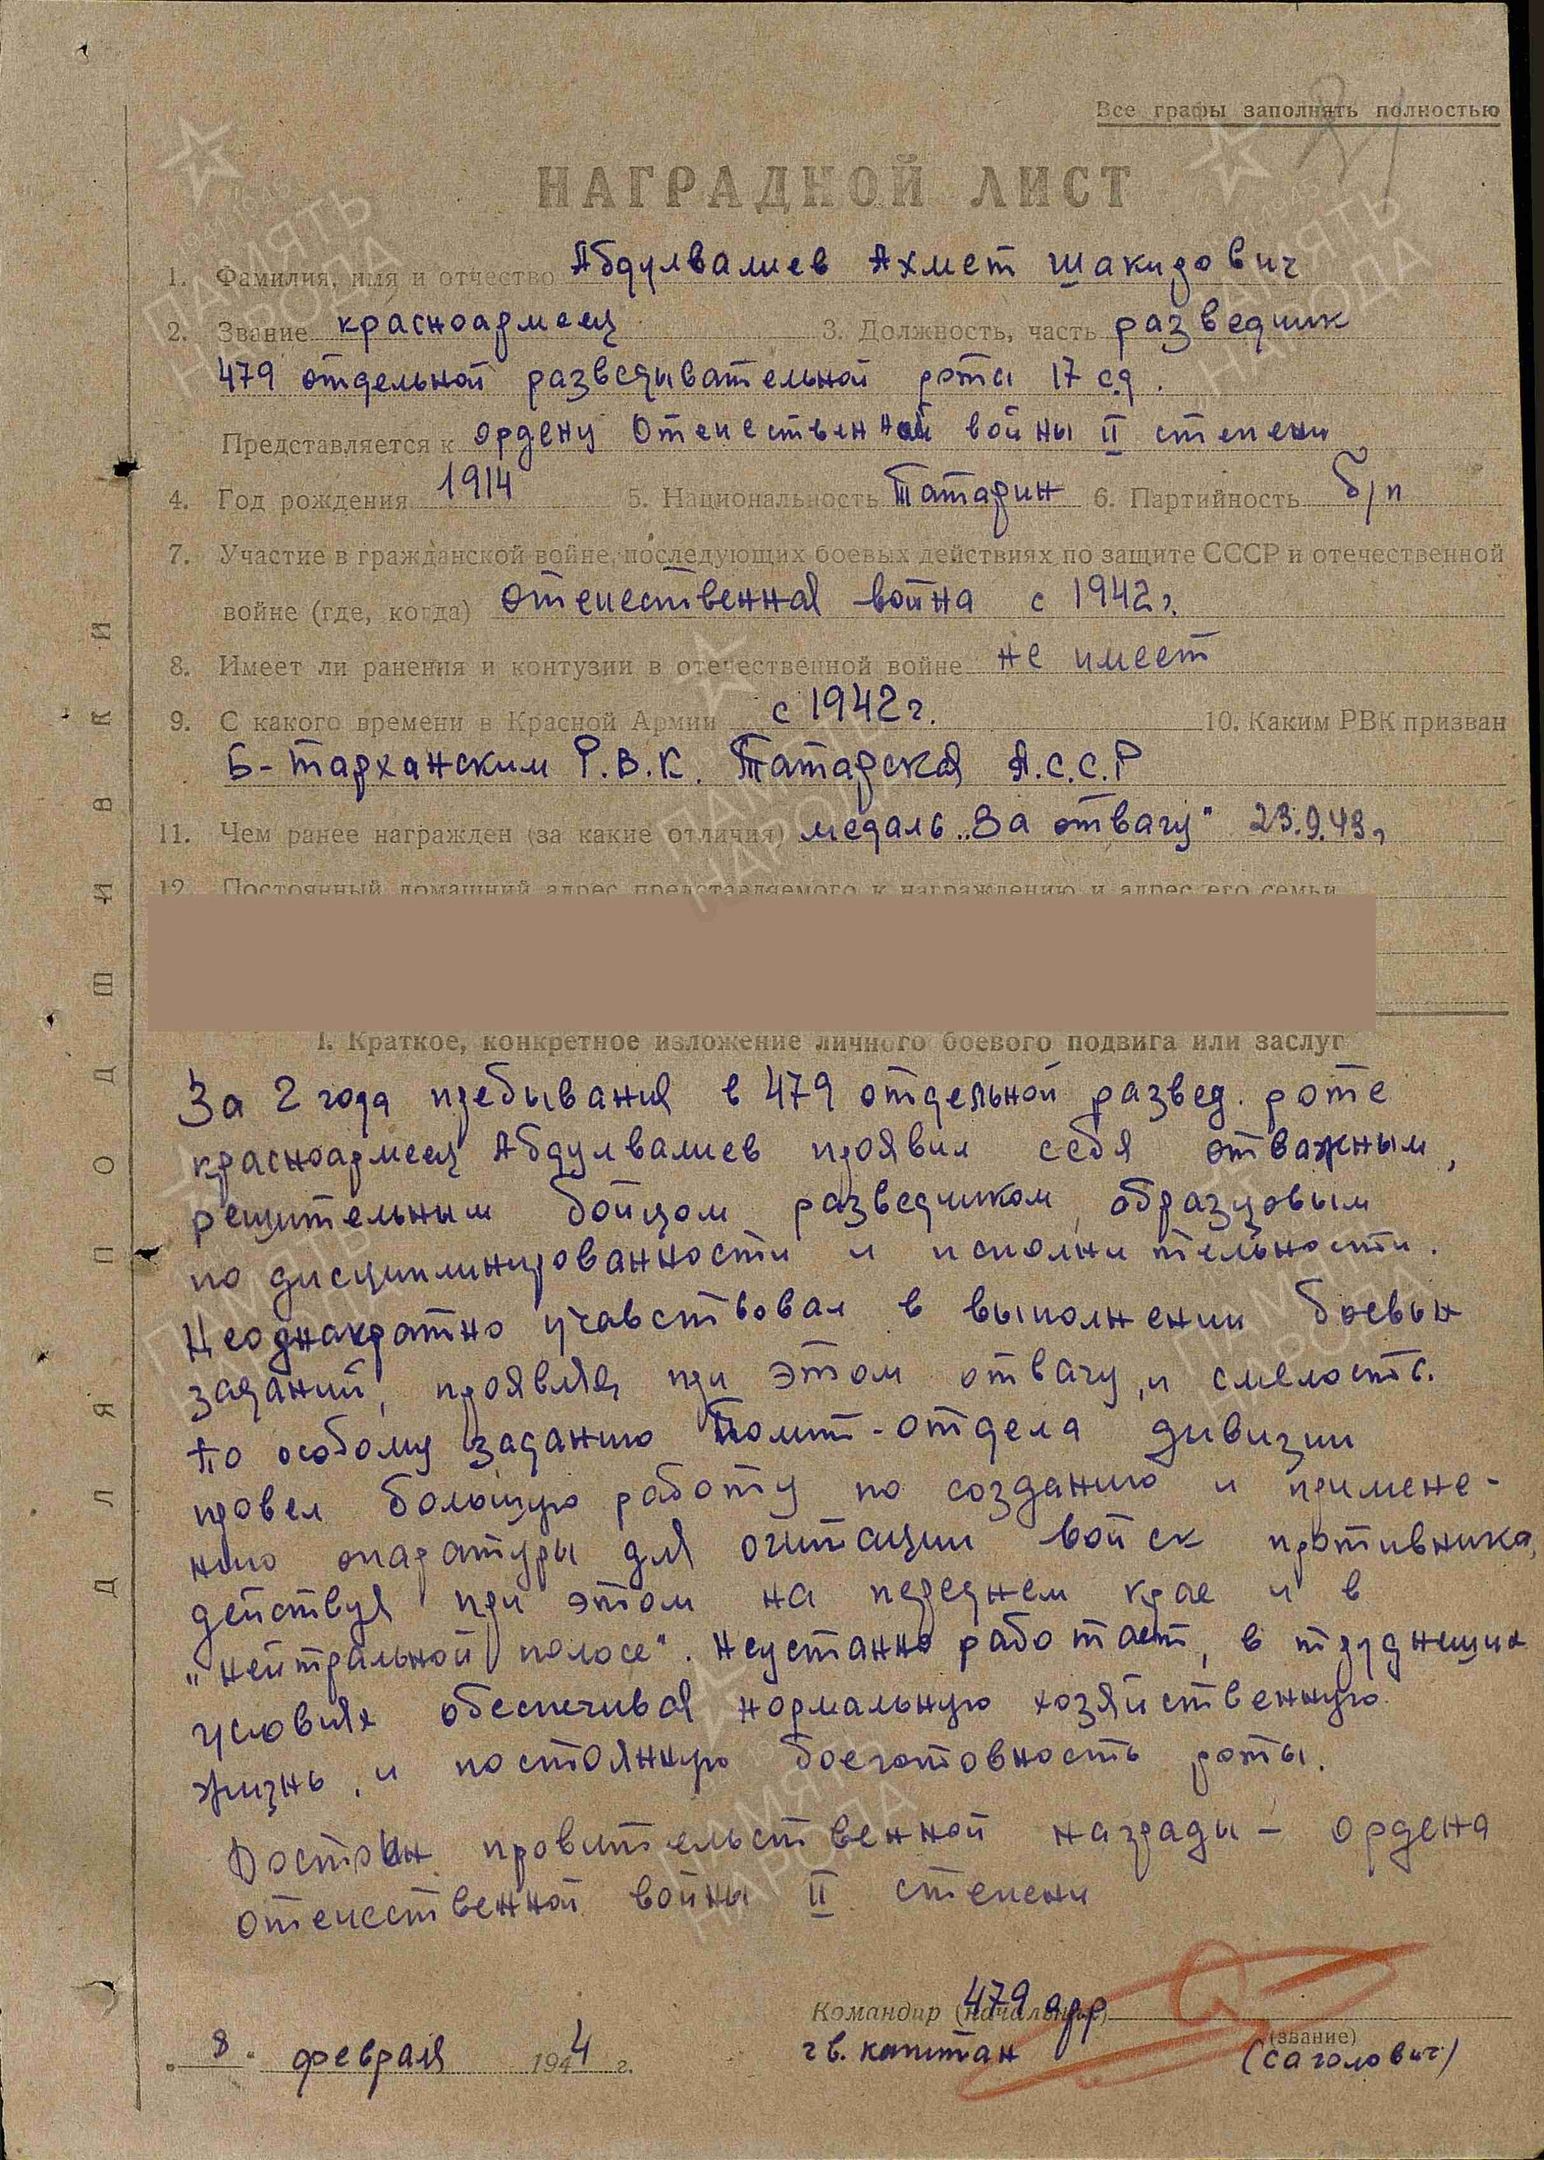 Все графы заполнять полностью
НАГРАДНОЙ ЛИСТ
1. Фамилия, имя и отчество Абдулвалиев Ахмет Шакирович
2. Звание красноармеец 3. Должность, часть разведчик
479 отдельной разведывательной роты 17 сд.
Представляется к ордену Отечественной войны II степени
4. Год рождения 1914 5. Национальность Татарин 6. Партийность б/п
7. Участие в гражданской войне, последующих боевых действиях по защите СССР и отечественной
войне (где, когда) отечественная война с 1942 г.
8. Имеет ли ранения и контузии в отечественной войне не имеет
9. С какого времени в Красной Армии с 1942 г. 10. Каким РВК призван
Б-Тарханским Р.В.К. Татарская А.С.С.Р
11. Чем ранее награжден (за какие отличия) медаль „За отвагу" 23.9.43 г
12. Постоянный домашний адрес представляемого к награждению и адрес его семьи
I. Краткое, конкретное изложение личного боевого подвига или заслуг
За 2 года пребывания в 479 отдельной развед. роте
красноармеец Абдулвалиев проявил себя отважным,
решительным бойцом разведчиком, образцовым
по дисциплинированности и исполнительности.
Неоднакратно учавствовал в выполнении боевых
заданий, проявляя при этом отвагу, и смелость.
По особому заданию Полит-отдела дивизии
провел большую работу по созданию и примене-
нию опаратуры для огитации войск противника,
действуя при этом на переднем крае и в
„нейтральной полосе". Неустанно работает, в труднейших
условиях обеспечивая нормальную хозяйственную
жизнь, и постоянную боеготовность роты.
Достоин провительственной награды - ордена
отечественной войны II степени
Командир (начальник) 479 орр
(звание)
гв. капитан (Саголович)
„8" февраля 1944 г.
ДЛЯ ПОДШИВКИ
ПАМЯТЬ НАРОДА